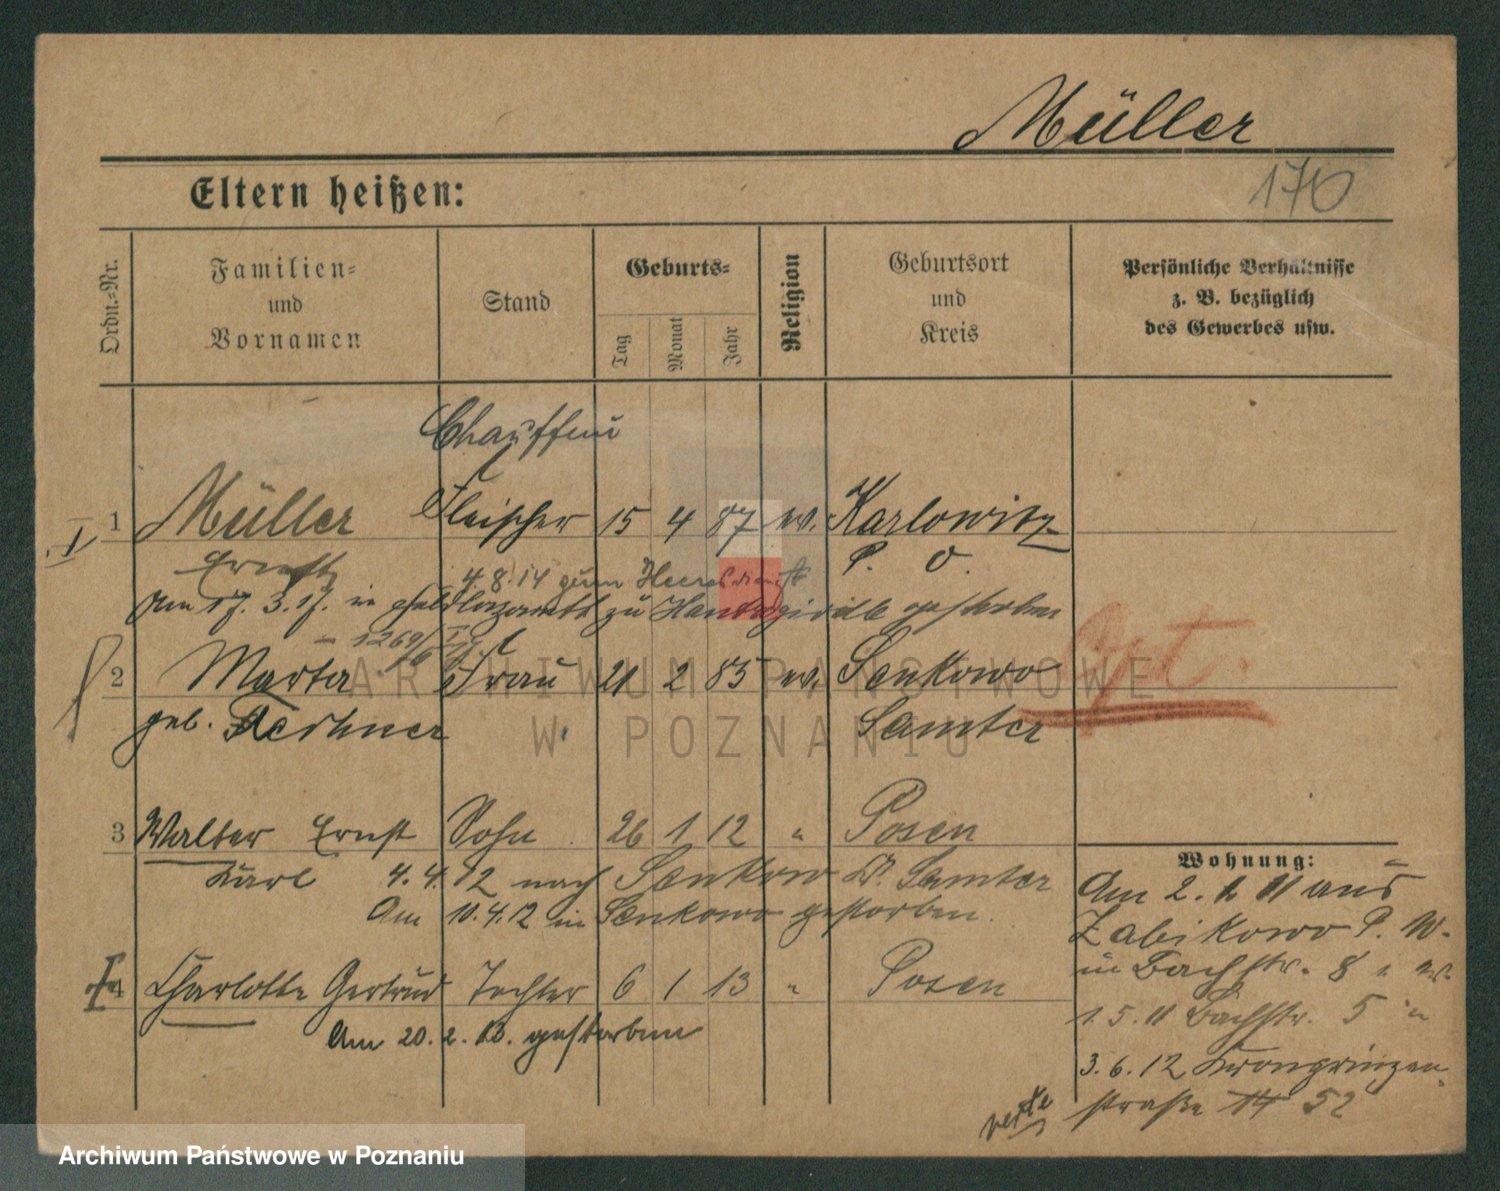 Müller
176
Eltern heißen:
Ordn.=Nr.
Familien=
und
Vornamen
Stand
Geburts=
Tag
Monat
Jahr
Religion
Geburtsort
und
Kreis
Persönliche Verhältnisse
z. B. bezüglich
des Gewerbes usw.
Chauffeur
1 Müller Fleischer 15 4 87 ev. Karlowitz
Ernst P. O.
4.8.14 zum Heeresdienst
Am 17.3.17. in zu gestorben
1269/
2 Marta Frau 21 2 83 ev. Senkowo
geb. Samter
3 Walter Ernst Sohn 26 1 12 " Posen
Karl 4.4.12 nach Senkowo Kr. Samter
Am 10.4.12 in Senkowo gestorben.
4 Charlotte Gertrud Tochter 6 1 13 " Posen
Am 20.2.13. gestorben
Wohnung:
Am 2.1.11 aus
Zabikowo P. W.
in Bachstr. 8
1.5.11 Bachstr. 5
3.6.12 Kronprinzen-
straße 52
ARCHIWUM PAŃSTWOWE
W POZNANIU
Archiwum Państwowe w Poznaniu